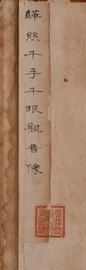 緙絲千手千眼觀音像